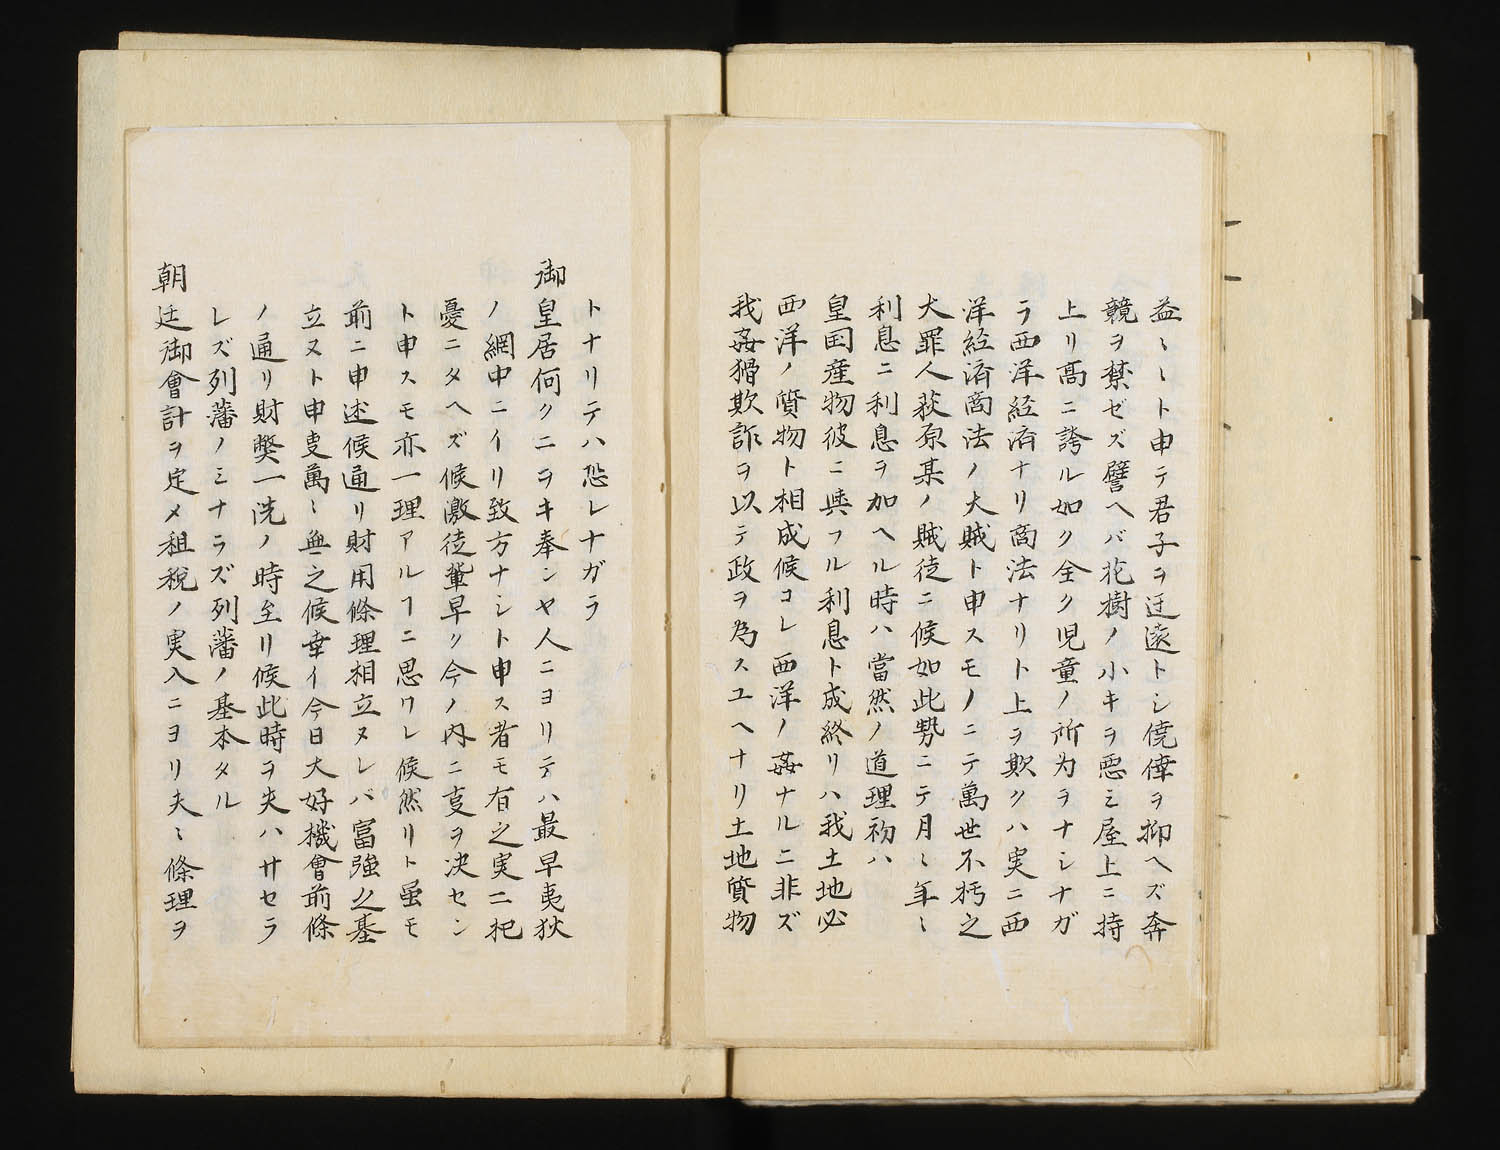 益〻ト申テ君子ヲ迂遠トシ僥倖ヲ抑ヘズ奔
競ヲ禁ゼズ譬ヘバ花樹ノ小キヲ悪ミ屋上ニ持
上リ高ニ誇ル如ク全ク児童ノ所為ヲナシナガ
ラ西洋経済ナリ商法ナリト上ヲ欺クハ実ニ西
洋経済商法ノ大賊ト申スモノニテ萬世不朽之
大罪人荻原某ノ賊徒ニ候如此勢ニテ月〻年〻
利息ニ利息ヲ加ヘル時ハ當然ノ道理初ハ
皇国産物彼ニ與フル利息ト成終リハ我土地必
西洋ノ質物ト相成候コレ西洋ノ姦ナルニ非ズ
我姦猾欺詐ヲ以テ政ヲ為スユヘナリ土地質物
トナリテハ恐レナガラ
御皇居何クニヲキ奉ンヤ人ニヨリテハ最早夷狄
ノ網中ニイリ致方ナシト申ス者モ有之実ニ杞
憂ニタヘズ候激徒輩早ク今ノ内ニ㕝ヲ决セン
ト申スモ亦一理アルヿニ思ワレ候然リト虽モ
前ニ申述候通リ財用條理相立ヌレバ富強之基
立ヌト申㕝萬〻無之候幸イ今日大好機會前條
ノ通リ財弊一洗ノ時至リ候此時ヲ失ハサセラ
レズ列藩ノミナラズ列藩ノ基本タル
朝廷御會計ヲ定メ租税ノ実入ニヨリ夫〻條理ヲ